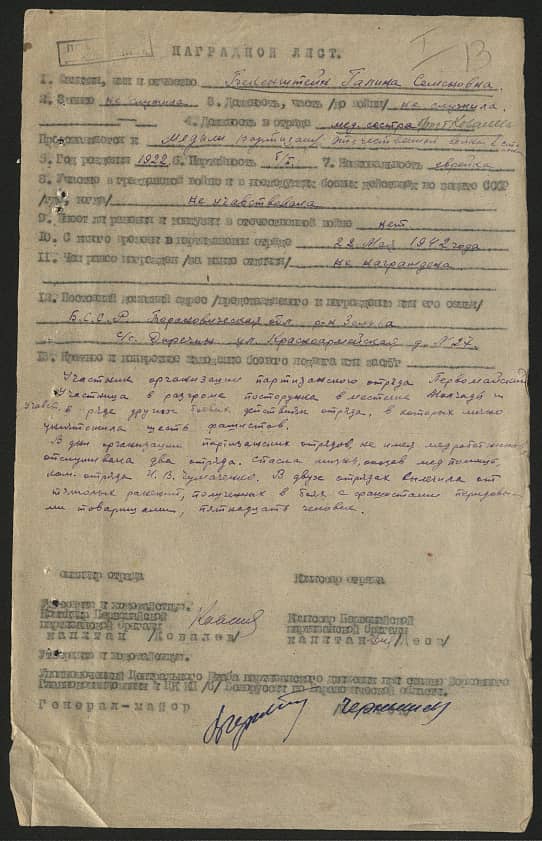 НАГРАДНОЙ ЛИСТ.
1. Фамилия, имя и отчество Бекенштейн Галина Семеновна
2. Звание не служила 3. Должность, часть /до войны/ не служила.
4. Должность в отряде мед. сестра
Представляется к Медали партизану отечественной войны
5. Год рождения 1922 6. Партийность б/п 7. Национальность еврейка
8. Участие в гражданской войне и последующих боевых действиях по защите СССР
/где, когда/ не участвовала
9. Имеет ли ранения и контузии в отечественной войне нет
10. С какого времени в партизанском отряде 22 мая 1942 года
11. Чем ранее награжден /за какие отличия/ не награждена.
12. Постоянный домашний адрес /представляемого к награждению или его семьи/
Б.С.С.Р. Барановическая обл. р-н Зельва
м. Деречин ул. Красноармейская д. № 27.
13. Краткое и конкретное изложение боевого подвига или заслуг
Участник организации партизанского отряда Первомайский
Участница в разгроме постерунка в местечке и
в ряде других боевых действий отряда, в которых лично
уничтожила шесть фашистов.
В дни организации партизанских отрядов, не имея медработников
обслуживала два отряда. Спасла жизнь, оказав мед помощь,
ком. отряда И. В. Чумаченко. В двух отрядах вылечила от
тяжелых ранений, полученных в боях с фашистами передовы-
ми товарищами, пятнадцать человек.
Командир отряда Комиссар отряда
Утверждаю и ходатайствую.
Командир Первомайской Комиссар Первомайской
партизанской бригады партизанской бригады
капитан /Ковалев/ капитан
Утверждаю и ходатайствую.
Уполномоченный Центрального Штаба партизанского движения при ставке Верховного
Главнокомандования и ЦК КП/б/ Белоруссии по Барановической области.
Генерал-майор Чернышев